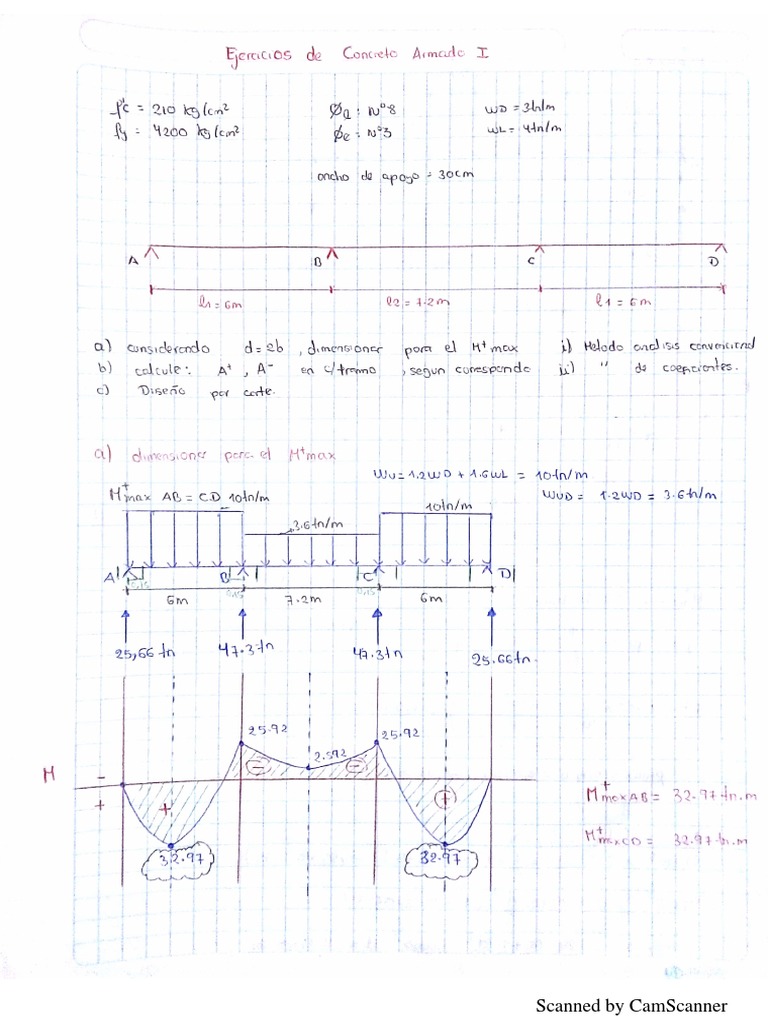 Ejercicios de Concreto Armado I
f'c = 210 kg/cm²
fy = 4200 kg/cm²
Øl : N°8
Øe : N°3
WD = 3tn/m
WL = 4tn/m
ancho de apoyo = 30cm
A B C D
l1 = 6m l2 = 7.2m l1 = 6m
a) considerando d=2b , dimensionar para el M+max i) Metodo analisis convencional
b) calcule: A+ , A- en c/tramo , segun corresponda ii) " de coeficientes.
c) Diseño por corte.
a) dimensionar para el M+max
WU = 1.2WD + 1.6WL = 10tn/m
WUD = 1.2WD = 3.6tn/m
M+max AB = CD 10tn/m
3.6tn/m
10tn/m
A B C D
0.15 0.15 0.15
6m 7.2m 6m
25,66 tn 47.3tn 47.3tn 25.66tn.
25.92 25.92
2.592
M
- +
+ - - +
32.97 32.97
M+maxAB = 32.97tn.m
M+maxCD = 32.97tn.m
Scanned by CamScanner